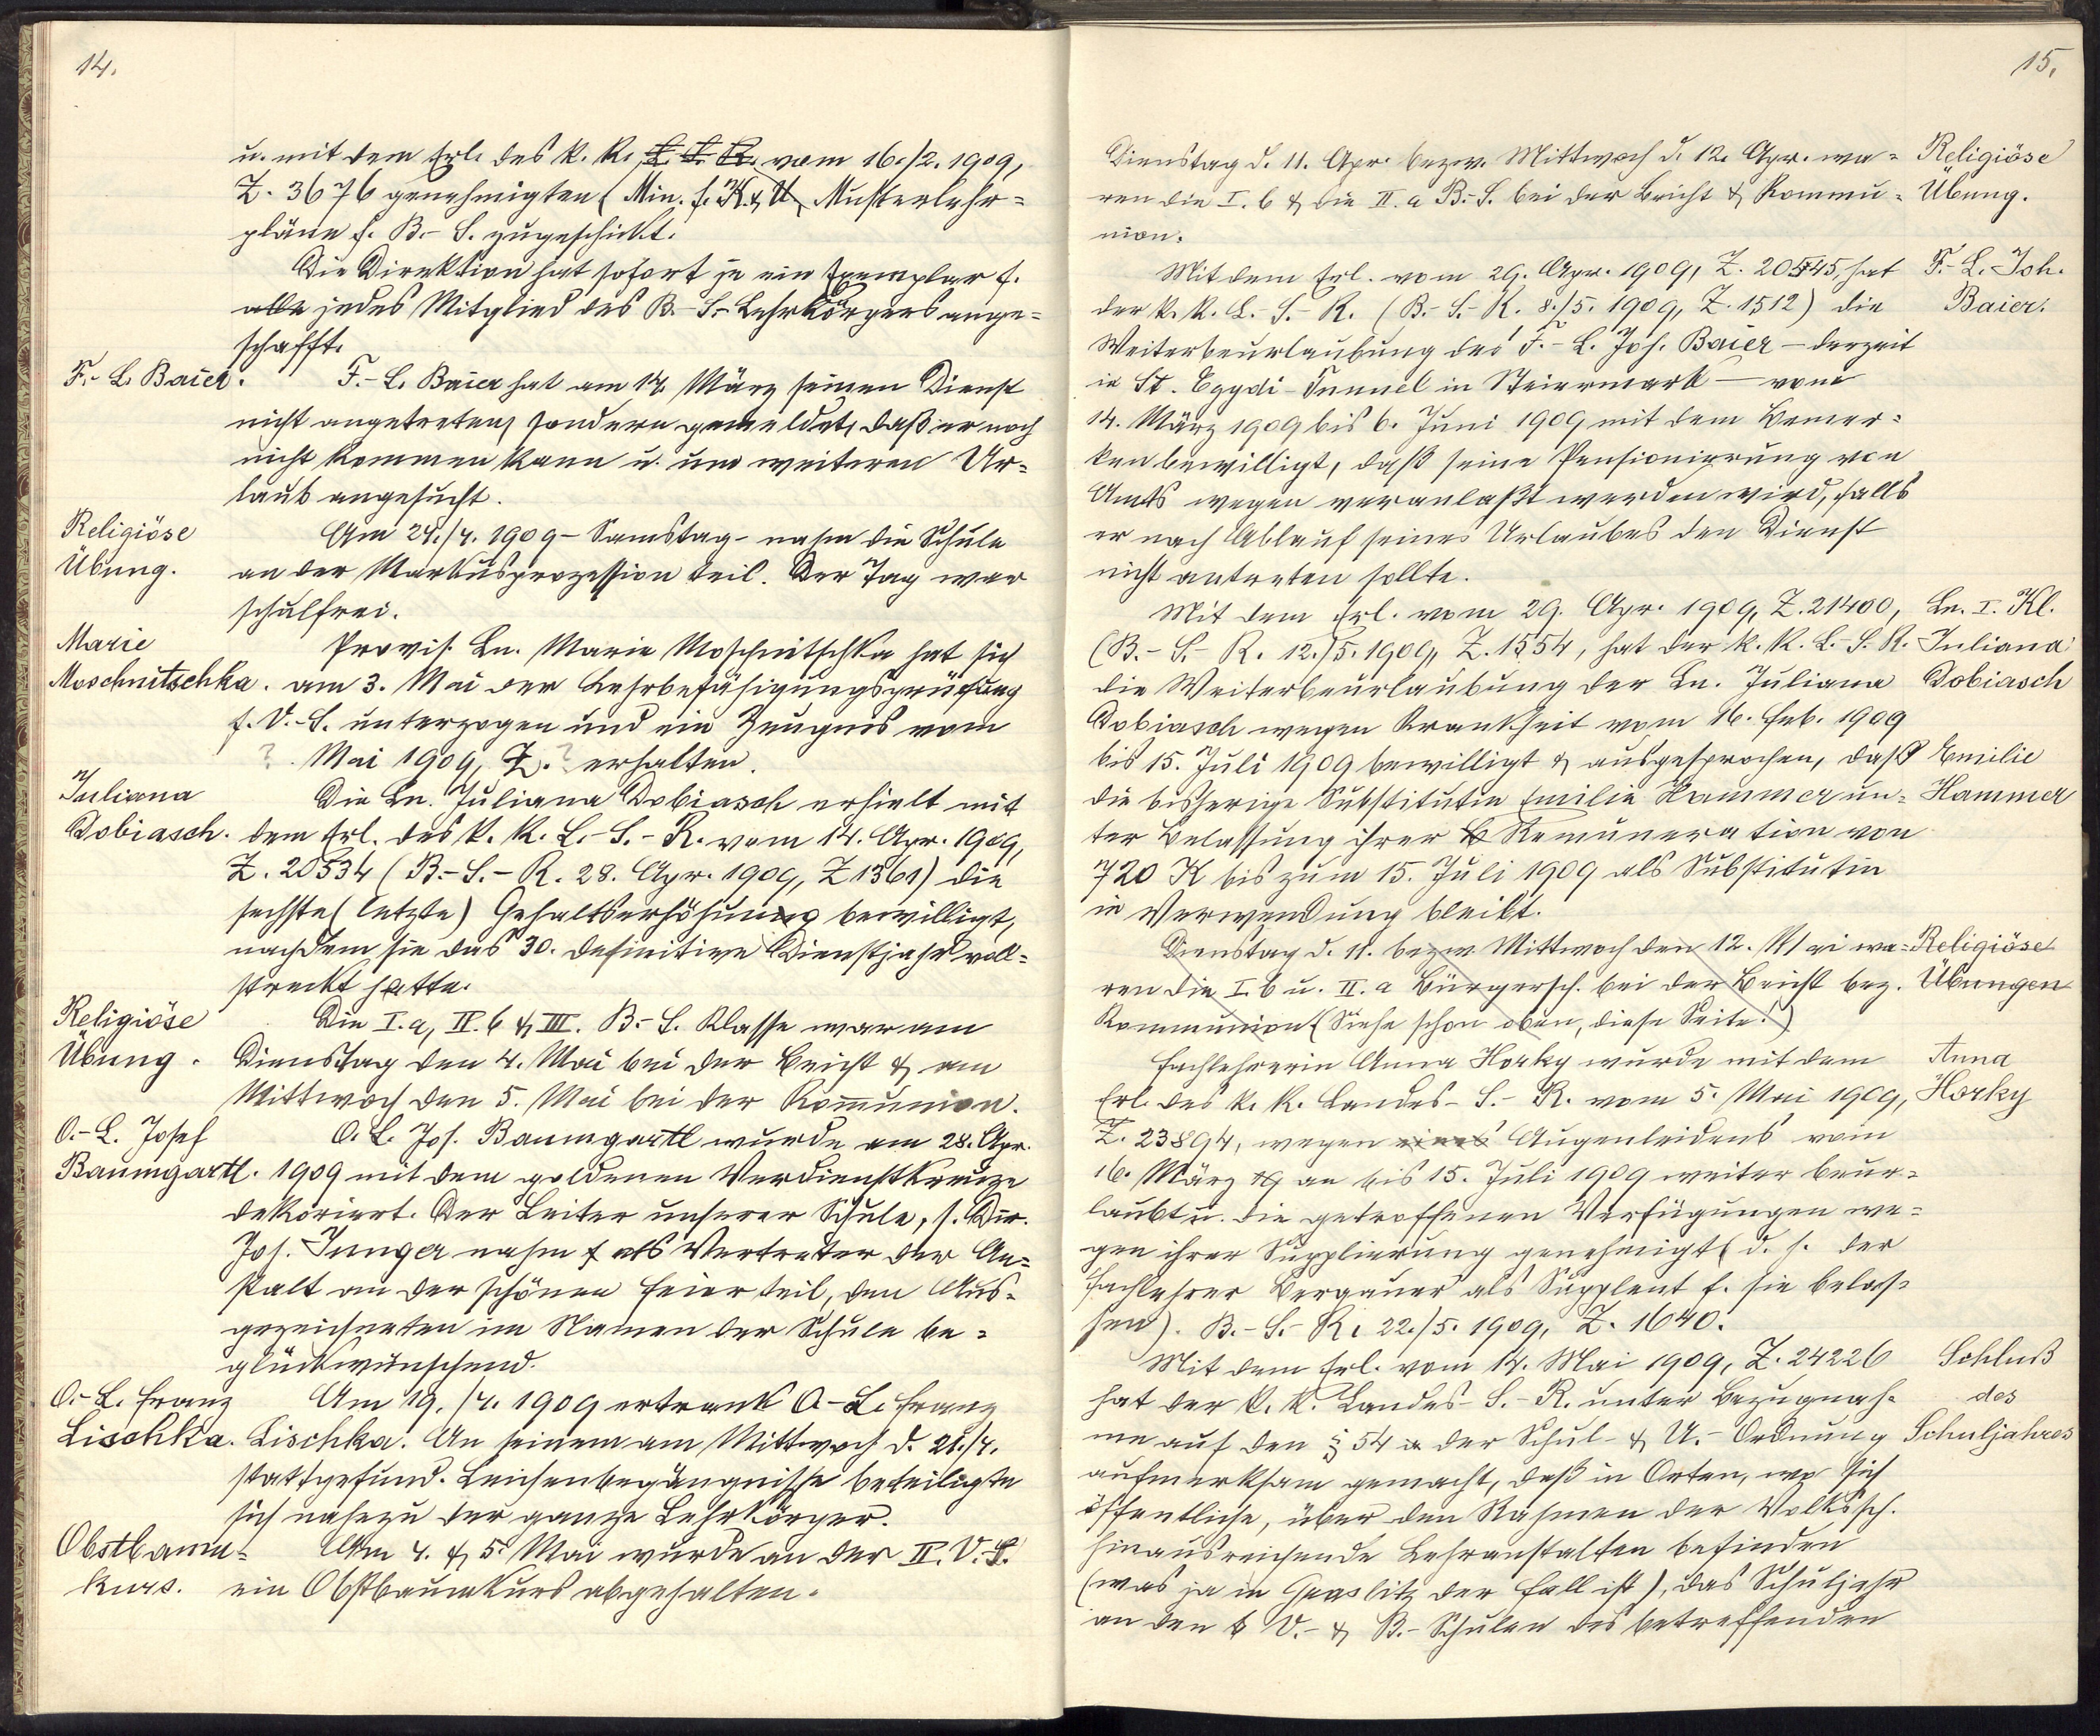 14.
u. mit dem Erl. des k. k. L. S. R. vom 16./2. 1909,
Z. 3676 genehmigten (Min. f. K. & U.) Musterlehr=
pläne f. B.-S. zugeschickt.
Die Direktion hat sofort je ein Exemplar f.
alle jedes Mitglied des B.-S.-Lehrkörpers ange=
schafft.
F.-L. Baier.
F.-L. Baier hat am 14. März seinen Dienst
nicht angetreten, sondern gemeldet, daß er noch
nicht kommen kann u. um weiteren Ur=
laub angesucht.
Religiöse
Übung.
Am 24./4. 1909 - Samstag - nahm die Schule
an der Markusprozession teil. Der Tag war
schulfrei.
Marie
Moschnitschka.
Provis. Ln. Marie Moschnitschka hat sich
am 3. Mai der Lehrbefähigungsprüfung
f. V.-S. unterzogen und ein Zeugnis vom
? Mai 1909, Z. ? erhalten.
Juliana
Dobiasch.
Die Ln. Juliana Dobiasch erhielt mit
dem Erl. des k. k. L.-S.-R. vom 14. Apr. 1909,
Z. 20534 (B.-S.-R. 28. Apr. 1909, Z 1361) die
sechste (letzte) Gehaltserhöhung bewilligt,
nachdem sie das 30. definitive Dienstjahr voll=
streckt hatte.
Religiöse
Übung.
Die I. a, II. b & III. B.-S. Klasse war am
Dienstag den 4. Mai bei der Beicht & am
Mittwoch den 5. Mai bei der Kommunion.
O.-L. Josef
Baumgartl.
O. L. Jos. Baumgartl wurde am 28. Apr.
1909 mit dem goldenen Verdienstkreuze
dekoriert. Der Leiter unserer Schule, s. Dir.
Jos. Junger nahm als Vertreter der An=
stalt an der schönen Feier teil, den Aus=
gezeichneten im Namen der Schule be=
glückwünschend.
O.-L. Franz
Lischka.
Am 19./4. 1909 ertrank O.-L. Franz
Lischka. An seinem am Mittwoch d. 21./4.
stattgefund. Leichenbegängnisse beteiligte
sich nahezu der ganze Lehrkörper.
Obstbaum=
kurs.
Am 4. & 5. Mai wurde an der II. V.-S.
ein Obstbaumkurs abgehalten.
15.
Dienstag d. 11. Apr. bezw. Mittwoch d. 12. Apr. wa=
ren die I. b & die II. a B.-S. bei der Beicht & Kommu=
nion.
Religiöse
Übung.
Mit dem Erl. vom 29. Apr. 1909, Z. 20545, hat
der k. k. L.-S.-R. (B.-S.-R. 8./5. 1909, Z. 1512) die
Weiterbeurlaubung des F.-L. Joh. Baier — derzeit
in St. Egydi-Tunnel in Steiermark — vom
14. März 1909 bis 6. Juni 1909 mit dem Bemer=
ken bewilligt, daß seine Pensionierung von
Amts wegen veranlaßt werden wird, falls
er nach Ablauf seines Urlaubes den Dienst
nicht antreten sollte.
F.-L. Joh.
Baier.
Mit dem Erl. vom 29. Apr. 1909, Z. 21400,
(B.-S.-R. 12./5. 1909, Z. 1554, hat der k. k. L.-S. R.
die Weiterbeurlaubung der Ln. Juliana
Dobiasch wegen Krankheit vom 16. Feb. 1909
bis 15. Juli 1909 bewilligt & ausgesprochen, daß
die bisherige Substitutin Emilie Hammer un=
ter Belassung ihrer Remuneration von
720 K bis zum 15. Juli 1909 als Substitutin
in Verwendung bleibt.
Ln. I. Kl.
Juliana
Dobiasch
Emilie
Hammer
Dienstag d. 11. bezw. Mittwoch den 12. Mai wa=
ren die I. b u. II. a Bürgersch. bei der Beicht bez.
Kommunion (Siehe schon oben, diese Seite!)
Religiöse
Übungen
Fachlehrerin Anna Horky wurde mit dem
Erl. des k. k. Landes-S.-R. vom 5. Mai 1909,
Z. 23894, wegen eines Augenleidens vom
16. März 19 an bis 15. Juli 1909 weiter beur=
laubt u. die getroffenen Verfügungen we=
gen ihrer Supplierung genehmigt (d. h. der
Fachlehrer Bergauer als Supplent f. sie belas=
sen). B.-S.-R. 22./5. 1909, Z. 1640.
Anna
Horky
Mit dem Erl. vom 14. Mai 1909, Z. 24226
hat der k. k. Landes-S.-R. unter Bezugnah=
me auf den § 54 der Schul- & U.-Ordnung
aufmerksam gemacht, daß in Orten, wo sich
öffentliche, über den Rahmen der Volkssch.
hinausreichende Lehranstalten befinden
(was ja in Graslitz der Fall ist), das Schuljahr
an den V.- & B.-Schulen des betreffenden
Schluß
des
Schuljahres